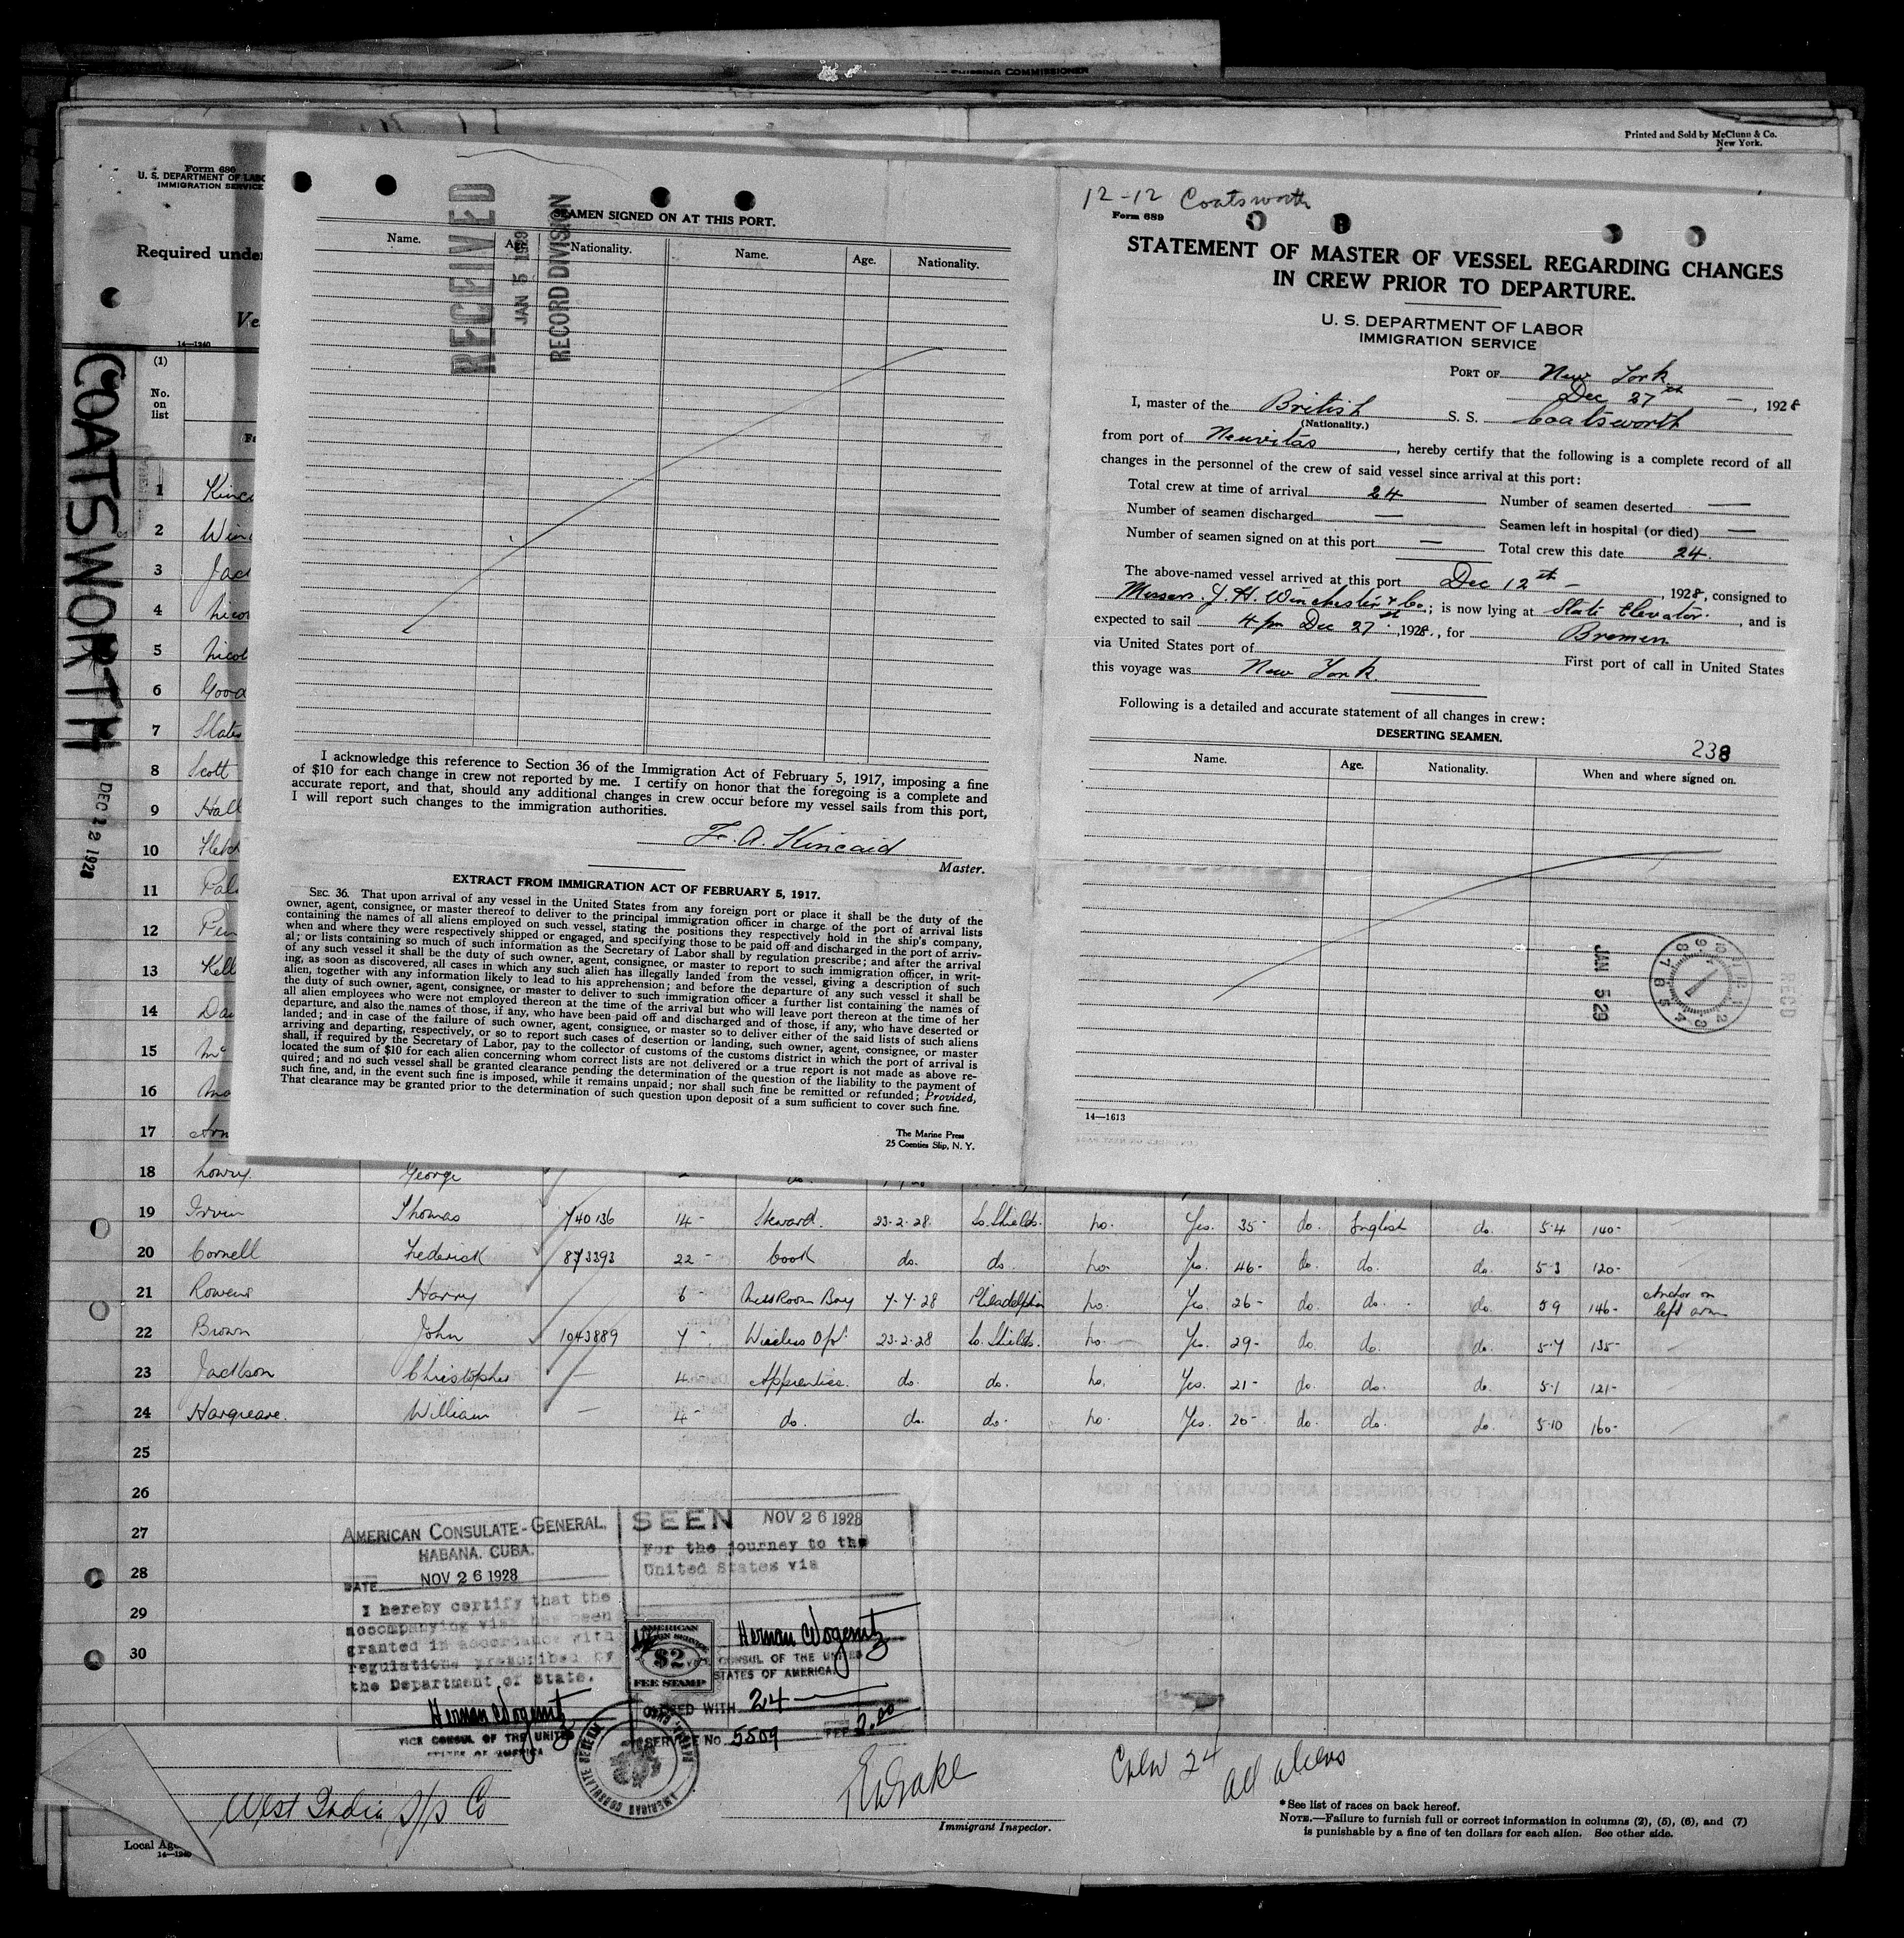 SHIPPING COMMISSIONER
Printed and Sold by McClunn & Co.
New York.
Form 680
U. S. DEPARTMENT OF LABO
IMMIGRATION SERVICE
Required unde
Ve
14—1240
(1)
No.
on
list
COATSWORTH
DEC 12 1928
1 Kinc
2 Win
3 Jac
4 Nico
5 Nicol
6 Good
7 Slate
8 Scott
9 Hall
10 Fletch
11 Pal
12
13 Kell
14 Da
15 Mc
16
17 Arn
SEAMEN SIGNED ON AT THIS PORT.
Name. Age. Nationality. Name. Age. Nationality.
RECEIVED
JAN 5 1929
RECORD DIVISION
I acknowledge this reference to Section 36 of the Immigration Act of February 5, 1917, imposing a fine
of $10 for each change in crew not reported by me. I certify on honor that the foregoing is a complete and
accurate report, and that, should any additional changes in crew occur before my vessel sails from this port,
I will report such changes to the immigration authorities.
F. A. Kincaid
Master.
EXTRACT FROM IMMIGRATION ACT OF FEBRUARY 5, 1917.
SEC. 36. That upon arrival of any vessel in the United States from any foreign port or place it shall be the duty of the
owner, agent, consignee, or master thereof to deliver to the principal immigration officer in charge of the port of arrival lists
containing the names of all aliens employed on such vessel, stating the positions they respectively hold in the ship's company,
when and where they were respectively shipped or engaged, and specifying those to be paid off and discharged in the port of arriv-
al; or lists containing so much of such information as the Secretary of Labor shall by regulation prescribe; and after the arrival
of any such vessel it shall be the duty of such owner, agent, consignee, or master to report to such immigration officer, in writ-
ing, as soon as discovered, all cases in which any such alien has illegally landed from the vessel, giving a description of such
alien, together with any information likely to lead to his apprehension; and before the departure of any such vessel it shall be
the duty of such owner, agent, consignee, or master to deliver to such immigration officer a further list containing the names of
all alien employees who were not employed thereon at the time of the arrival but who will leave port thereon at the time of her
departure, and also the names of those, if any, who have been paid off and discharged and of those, if any, who have deserted or
landed; and in case of the failure of such owner, agent, consignee, or master so to deliver either of the said lists of such aliens
arriving and departing, respectively, or so to report such cases of desertion or landing, such owner, agent, consignee, or master
shall, if required by the Secretary of Labor, pay to the collector of customs of the customs district in which the port of arrival is
located the sum of $10 for each alien concerning whom correct lists are not delivered or a true report is not made as above re-
quired; and no such vessel shall be granted clearance pending the determination of the question of the liability to the payment of
such fine, and, in the event such fine is imposed, while it remains unpaid; nor shall such fine be remitted or refunded; Provided,
That clearance may be granted prior to the determination of such question upon deposit of a sum sufficient to cover such fine.
The Marine Press
25 Coenties Slip, N. Y.
12-12 Coatsworth
Form 689
STATEMENT OF MASTER OF VESSEL REGARDING CHANGES
IN CREW PRIOR TO DEPARTURE.
U. S. DEPARTMENT OF LABOR
IMMIGRATION SERVICE
PORT OF New York
Dec 27th — , 1928
I, master of the British S. S. Coatsworth
(Nationality.)
from port of Neuvitas, hereby certify that the following is a complete record of all
changes in the personnel of the crew of said vessel since arrival at this port:
Total crew at time of arrival 24 Number of seamen deserted —
Number of seamen discharged — Seamen left in hospital (or died) —
Number of seamen signed on at this port — Total crew this date 24.
The above-named vessel arrived at this port Dec 12th — , 1928, consigned to
Messrs. J. H. Winchester & Co.; is now lying at State Elevator, and is
expected to sail 4 pm Dec 27th, 1928., for Bremen
via United States port of First port of call in United States
this voyage was New York.
Following is a detailed and accurate statement of all changes in crew:
DESERTING SEAMEN.
238
Name. Age. Nationality. When and where signed on.
JAN 5 29
REC'D
14—1613
18 Lowry. George
19 Irvin Thomas 740136 14- Steward. 23-2-28. So. Shields. No. Yes. 35- do. English do. 5-4 140-
20 Cornell Frederick 873393 22- Cook do. do. No. Yes. 46- do. do. do. 5-3 120-
21 Rowens Harry 6- Mess Room Boy 7-7-28 Philadelphia No. Yes. 26- do. do. do. 5 9 146- Anchor on
left arm
22 Brown John 1043889 7- Wireless Opr. 23-2-28 So. Shields. No. Yes. 29- do. do. do. 5-7 135-
23 Jackson Christopher — 4- Apprentice. do. do. No. Yes. 21- do. do. do. 5-1 121-
24 Hargreave. William — 4- do. do. do. No. Yes. 20- do. do. do. 5-10 160-
25
26
27
28
29
30
AMERICAN CONSULATE-GENERAL,
HABANA, CUBA.
DATE NOV 26 1928
I hereby certify that the
accompanying visa has been
granted in accordance with
regulations prescribed by
the Department of State.
VICE CONSUL OF THE UNITED
STATES OF AMERICA
SEEN NOV 26 1928
For the journey to the
United States via
AMERICAN
FOREIGN SERVICE
$2
FEE STAMP
VICE CONSUL OF THE UNITED
STATES OF AMERICA.
WITH 24
SERVICE No. 5509 FEE 2.00
AMERICAN CONSULATE GENERAL
West India S/S Co
Local Age
14—1240
Immigrant Inspector.
Crew 24
all aliens
*See list of races on back hereof.
NOTE.—Failure to furnish full or correct information in columns (2), (5), (6), and (7)
is punishable by a fine of ten dollars for each alien. See other side.